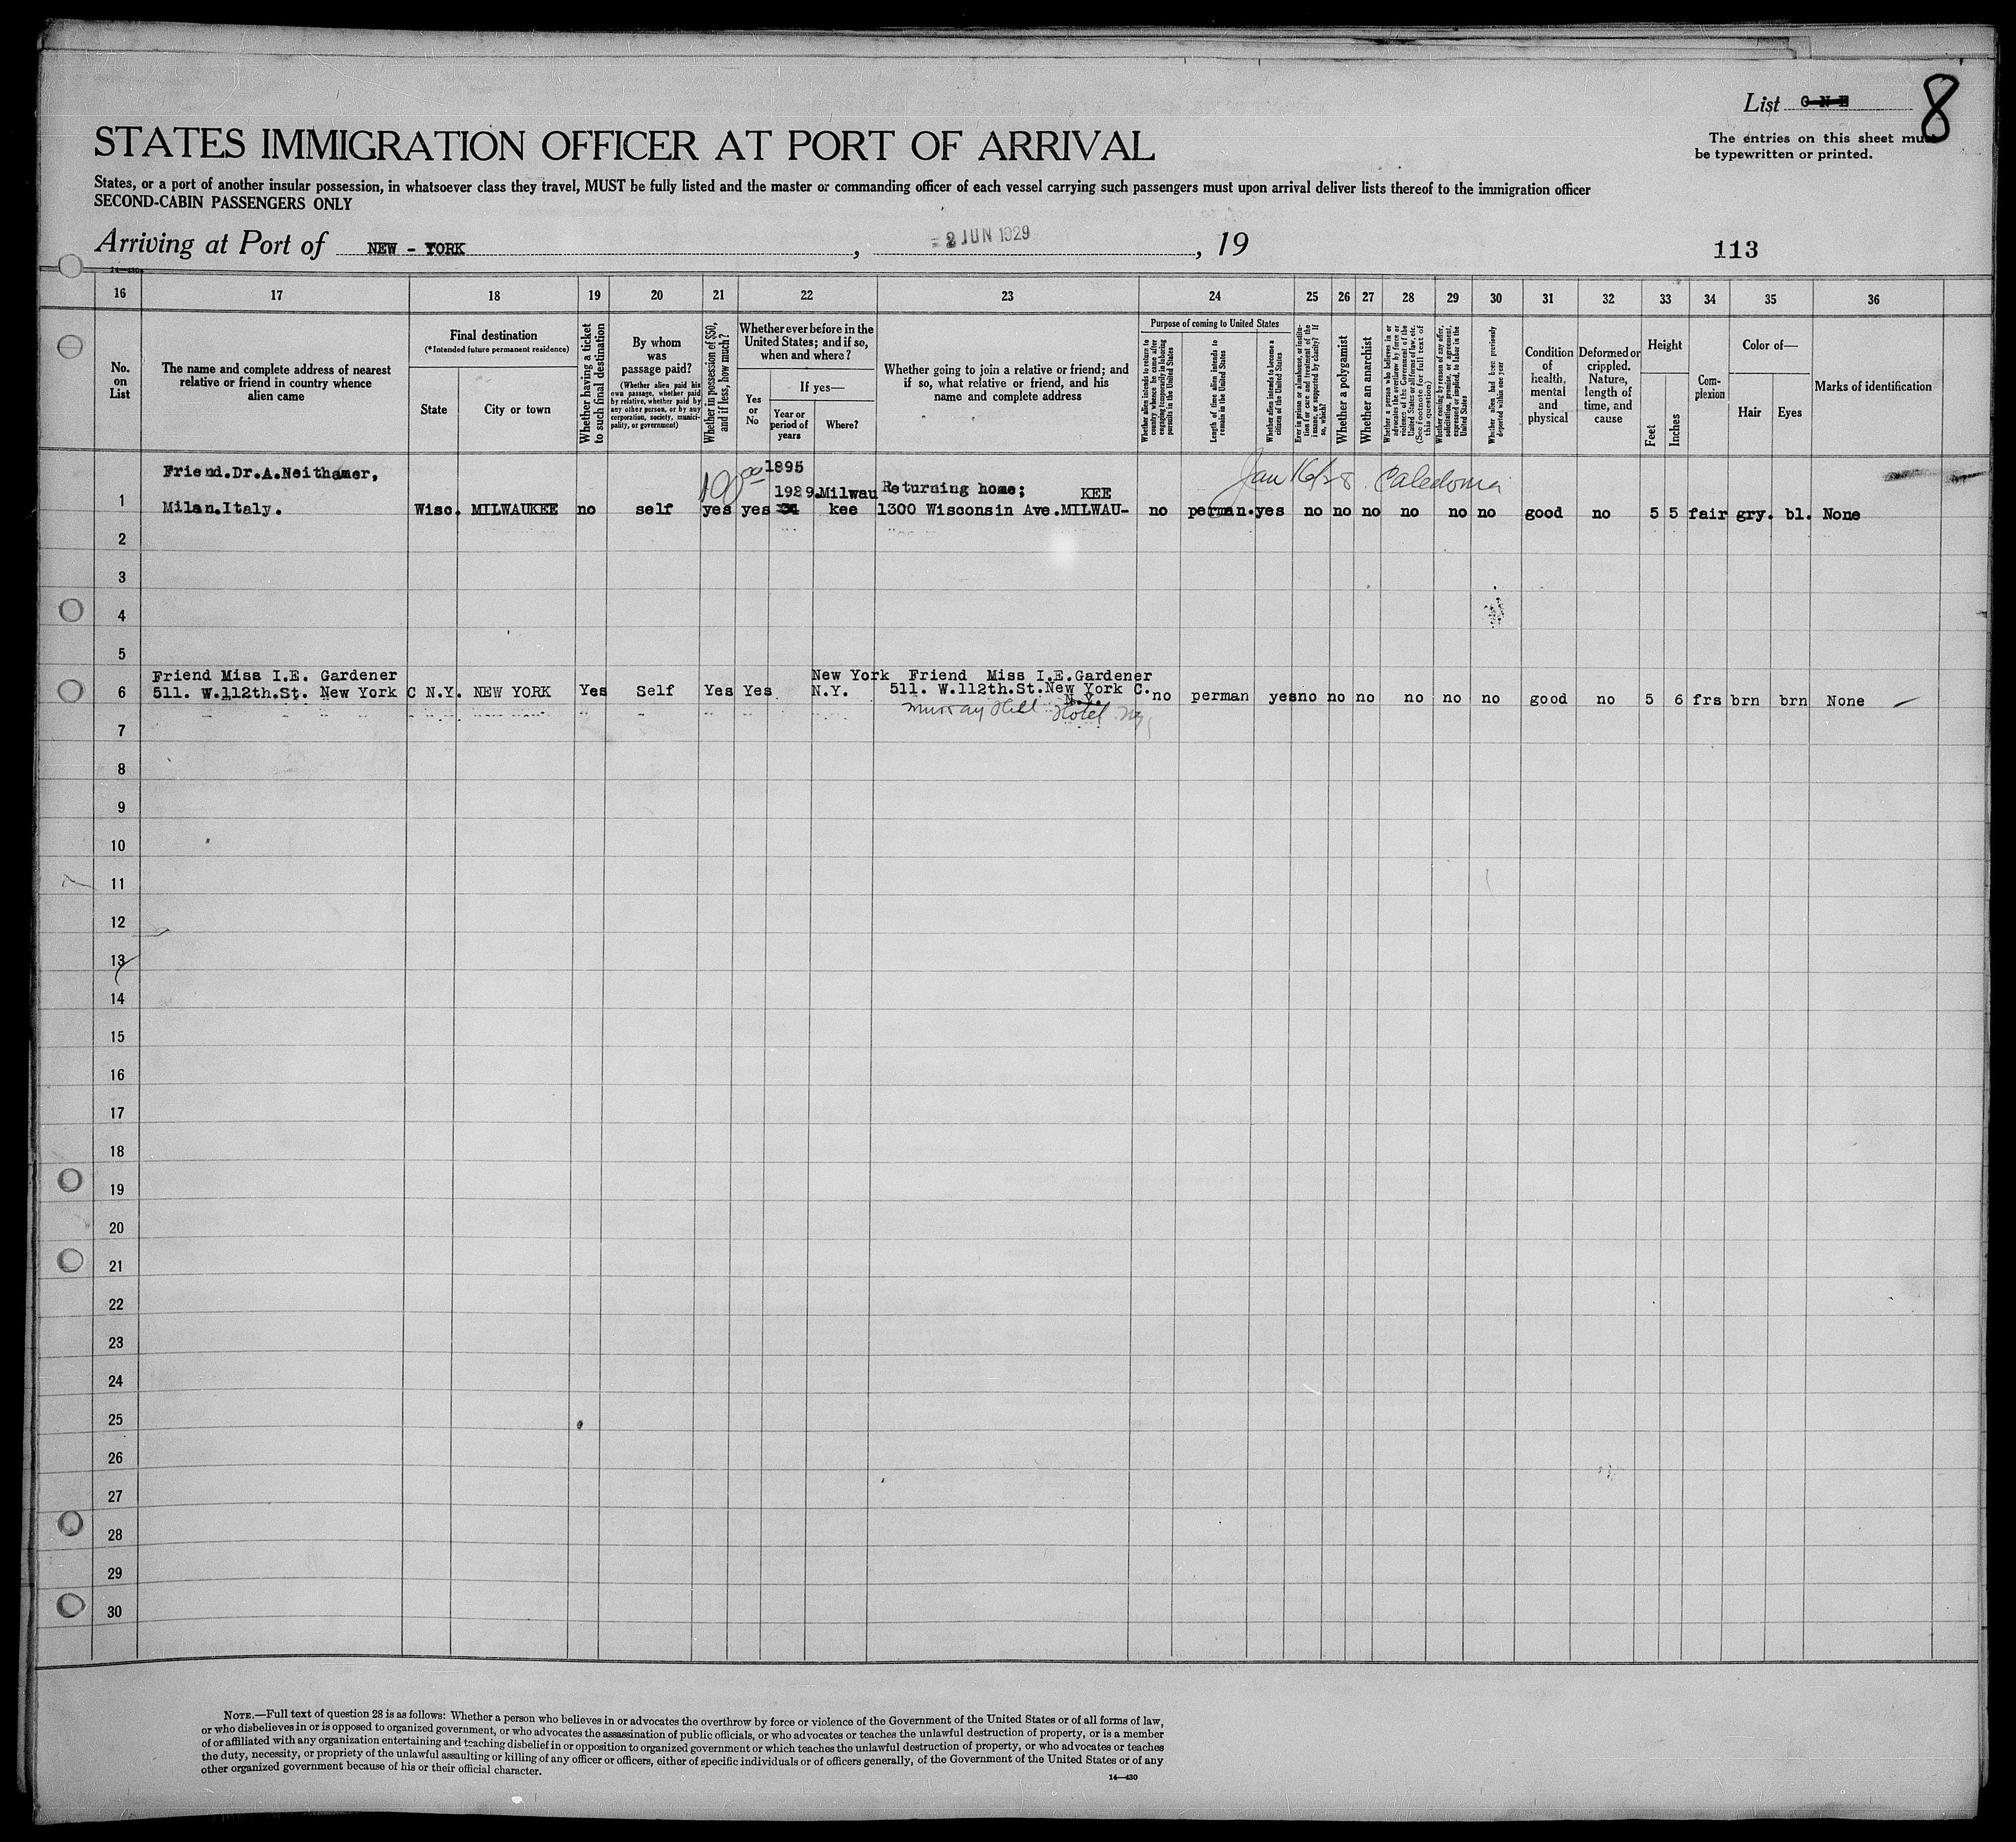 List O N E 8
The entries on this sheet must
be typewritten or printed.
STATES IMMIGRATION OFFICER AT PORT OF ARRIVAL
States, or a port of another insular possession, in whatsoever class they travel, MUST be fully listed and the master or commanding officer of each vessel carrying such passengers must upon arrival deliver lists thereof to the immigration officer
SECOND-CABIN PASSENGERS ONLY
Arriving at Port of NEW - YORK, 2 JUN 1929, 19
113
14—430
16 17 18 19 20 21 22 23 24 25 26 27 28 29 30 31 32 33 34 35 36
No. on List
The name and complete address of nearest
relative or friend in country whence
alien came
Final destination
(*Intended future permanent residence)
State
City or town
Whether having a ticket
to such final destination
By whom
was
passage paid?
(Whether alien paid his
own passage, whether paid
by relative, whether paid by
any other person, or by any
corporation, society, munici-
pality, or government)
Whether in possession of $50,
and if less, how much?
Whether ever before in the
United States; and if so,
when and where?
Yes
or
No
If yes—
Year or
period of
years
Where?
Whether going to join a relative or friend; and
if so, what relative or friend, and his
name and complete address
Purpose of coming to United States
Whether alien intends to return to
country whence he came after
engaging temporarily in laboring
pursuits in the United States
Length of time alien intends to
remain in the United States
Whether alien intends to become a
citizen of the United States
Ever in prison or almshouse, or institu-
tion for care and treatment of the
insane, or supported by charity? If
so, which?
Whether a polygamist
Whether an anarchist
Whether a person who believes in or
advocates the overthrow by force or
violence of the Government of the
United States or all forms of law, etc.
(See footnote for full text of
this question)
Whether coming by reason of any offer,
solicitation, promise, or agreement,
expressed or implied, to labor in the
United States
Whether alien had been previously
deported within one year
Condition
of
health,
mental
and
physical
Deformed or
crippled.
Nature,
length of
time, and
cause
Height
Feet
Inches
Com-
plexion
Color of—
Hair
Eyes
Marks of identification
Friend.Dr.A.Neithamer, 100 00 1895 Jan 16/28 Caledonia
1929. Milwau Returning home; KEE
1 Milan.Italy. Wisc. MILWAUKEE no self yes yes kee 1300 Wisconsin Ave.MILWAU- no perman. yes no no no no no no good no 5 5 fair gry. bl. None
2
3
4
5
Friend Miss I.E. Gardener New York Friend Miss I.E.Gardener
6 511. W.112th.St. New York C N.Y. NEW YORK Yes Self Yes Yes N.Y. 511. W.112th.St.New York C. no perman yes no no no no no no good no 5 6 frs brn brn None
N.Y.
Murray Hill Hotel NY
7
8
9
10
11
12
13
14
15
16
17
18
19
20
21
22
23
24
25
26
27
28
29
30
NOTE.—Full text of question 28 is as follows: Whether a person who believes in or advocates the overthrow by force or violence of the Government of the United States or of all forms of law,
or who disbelieves in or is opposed to organized government, or who advocates the assassination of public officials, or who advocates or teaches the unlawful destruction of property, or is a member
of or affiliated with any organization entertaining and teaching disbelief in or opposition to organized government or which teaches the unlawful destruction of property, or who advocates or teaches
the duty, necessity, or propriety of the unlawful assaulting or killing of any officer or officers, either of specific individuals or of officers generally, of the Government of the United States or of any
other organized government because of his or their official character.
14—430